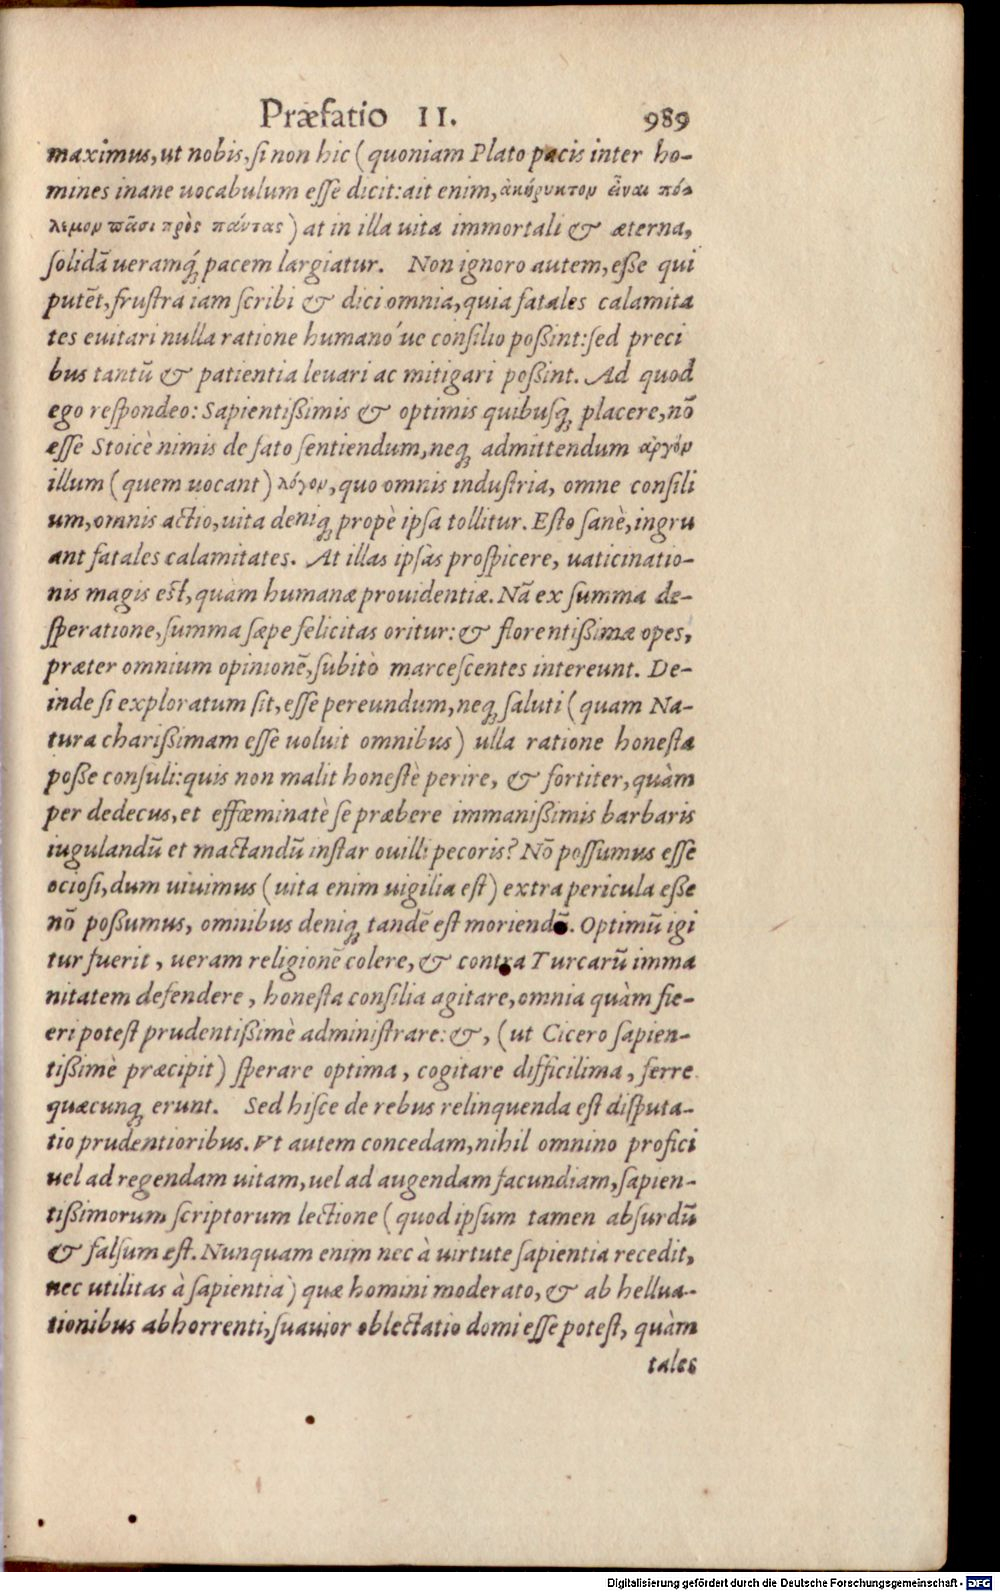 Præfatio II. 989
maximus, ut nobis, ſi non hic (quoniam Plato pacis inter ho-
mines inane uocabulum eſſe dicit: ait enim, ἀκήρυκτον εἶναι πό-
λεμον πᾶσι πρὸς πάντας) at in illa uita immortali & æterna,
ſolidā ueramq́; pacem largiatur. Non ignoro autem, eſſe qui
putēt, fruſtra iam ſcribi & dici omnia, quia fatales calamita
tes euitari nulla ratione humano´ue conſilio poßint: ſed preci
bus tantū & patientia leuari ac mitigari poßint. Ad quod
ego reſpondeo: Sapientißimis & optimis quibuſq; placere, nō
eſſe Stoicè nimis de fato ſentiendum, neq; admittendum ἀργὸν
illum (quem uocant) λόγον, quo omnis induſtria, omne conſili
um, omnis actio, uita deniq; propè ipſa tollitur. Eſto ſanè, ingru
ant fatales calamitates. At illas ipſas proſpicere, uaticinatio-
nis magis eſt, quàm humanæ prouidentiæ. Nā ex ſumma de-
ſperatione, ſumma ſæpe felicitas oritur: & florentißimæ opes,
præter omnium opinionē, ſubitò marceſcentes intereunt. De-
inde ſi exploratum ſit, eſſe pereundum, neq; ſaluti (quam Na-
tura charißimam eſſe uoluit omnibus) ulla ratione honeſta
poſſe conſuli: quis non malit honeſtè perire, & fortiter, quàm
per dedecus, et effœminatè ſe præbere immanißimis barbaris
iugulandū et mactandū inſtar ouilli pecoris? Nō poſſumus eſſe
ocioſi, dum uiuimus (uita enim uigilia eſt) extra pericula eſſe
nō poßumus, omnibus deniq; tandē eſt moriendū. Optimū igi
tur fuerit, ueram religionē colere, & contra Turcarū imma
nitatem defendere, honeſta conſilia agitare, omnia quàm fie-
eri poteſt prudentißimè adminiſtrare: &, (ut Cicero ſapien-
tißimè præcipit) ſperare optima, cogitare difficilima, ferre
quæcunq; erunt. Sed hiſce de rebus relinquenda eſt diſputa-
tio prudentioribus. Vt autem concedam, nihil omnino profici
uel ad regendam uitam, uel ad augendam facundiam, ſapien-
tißimorum ſcriptorum lectione (quod ipſum tamen abſurdū
& falſum eſt. Nunquam enim nec à uirtute ſapientia recedit,
nec utilitas à ſapientia) quæ homini moderato, & ab hellua-
tionibus abhorrenti, ſuauior oblectatio domi eſſe poteſt, quàm
tales
Digitalisierung gefördert durch die Deutsche Forschungsgemeinschaft - DFG